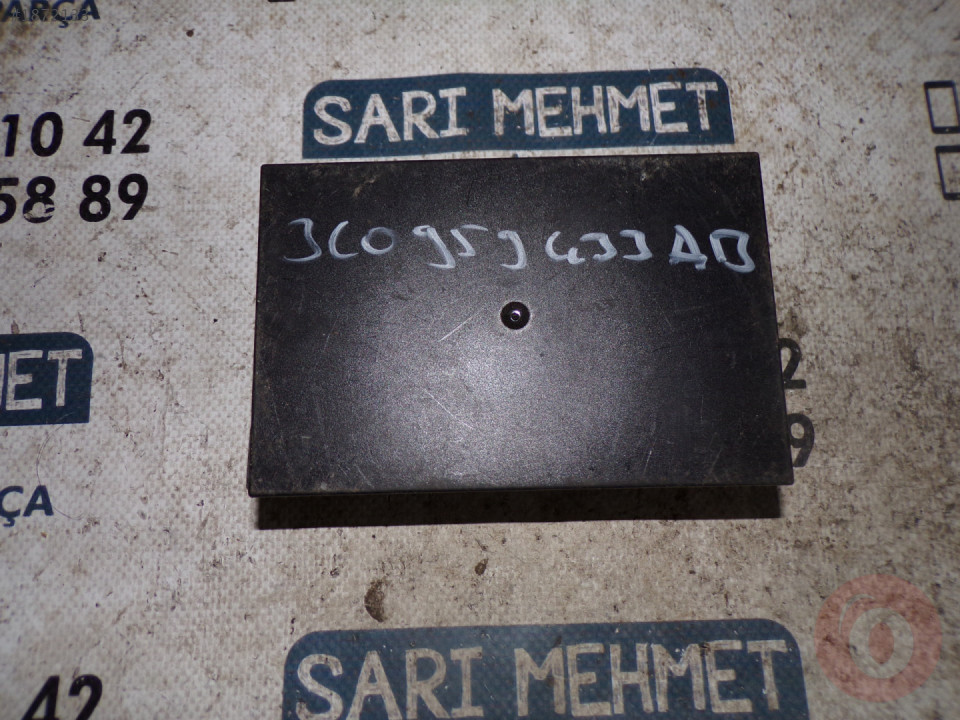 PARÇA
SARI MEHMET
10 42
58 89
3C0959433AB
MET
2
9
ÇA
SARI MEHMET
42